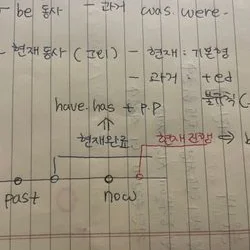 - be 동사 - 과거 was. were.
- 현재동사 ( - 현재 : 기본형
- 과거 : + ed
불규칙 (
have. has + p.p
⇑
현재완료 현재진행 → b
past now